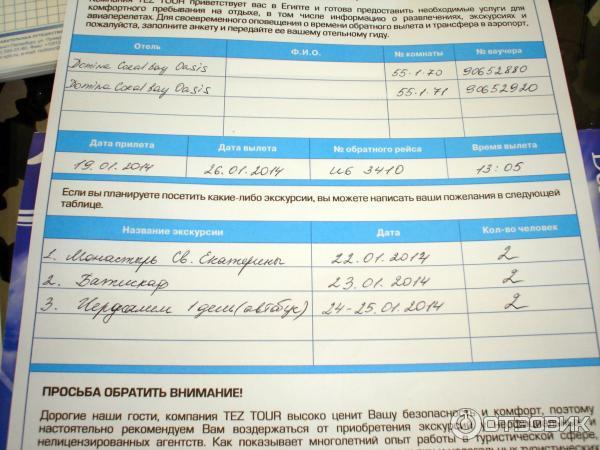 Компания TEZ TOUR приветствует вас в Египте и готова предоставить необходимые услуги для
комфортного пребывания на отдыхе, в том числе информацию о развлечениях, экскурсиях и
авиаперелетах. Для своевременного оповещения о времени обратного вылета и трансфера в аэропорт,
пожалуйста, заполните анкету и передайте ее вашему отельному гиду.
Отель Ф.И.О. № комнаты № ваучера
Domina Coral bay Oasis 55.1.70 90652880
Domina Coral bay Oasis 55.1.71 90652920
Дата прилета Дата вылета № обратного рейса Время вылета
19.01.2014 26.01.2014 U6 3410 13:05
Если вы планируете посетить какие-либо экскурсии, вы можете написать ваши пожелания в следующей
таблице.
Название экскурсии Дата Кол-во человек
1. Монастырь Св. Екатерины 22.01.2014 2
2. Батискаф 23.01.2014 2
3. Иерусалим 1 день (автобус) 24-25.01.2014 2
ПРОСЬБА ОБРАТИТЬ ВНИМАНИЕ!
Дорогие наши гости, компания TEZ TOUR высоко ценит Вашу безопасность и комфорт, поэтому
настоятельно рекомендуем Вам воздержаться от приобретения экскурсий у неофициальных и
нелицензированных агентств. Как показывает многолетний опыт работы в туристической сфере,
ОТЗОВИК